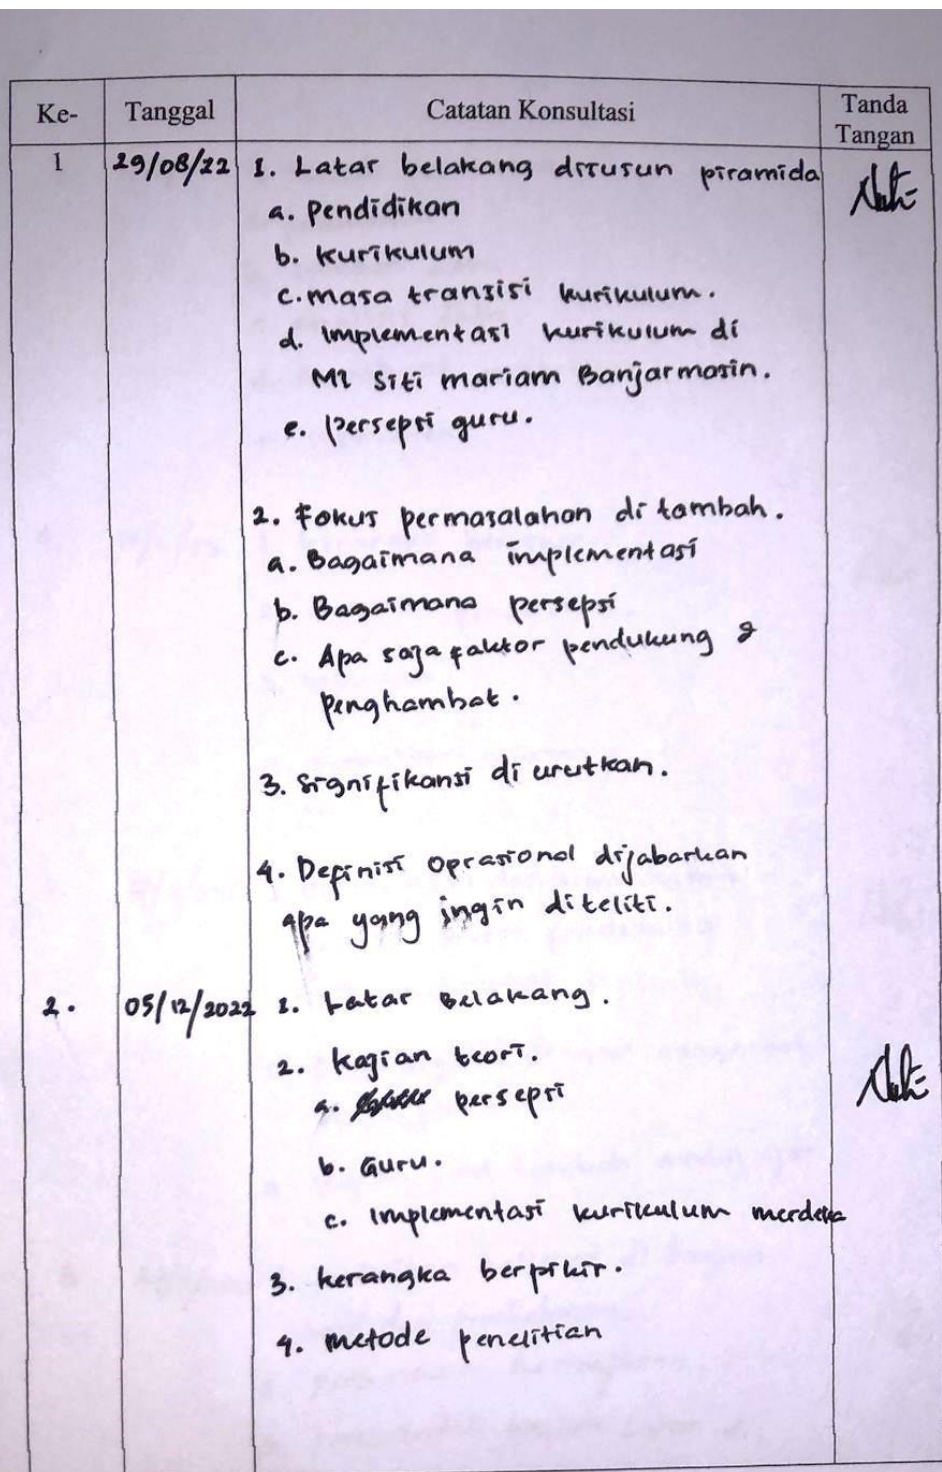 Ke- Tanggal Catatan Konsultasi Tanda Tangan
1 29/08/22 1. Latar belakang disusun piramida
a. Pendidikan
b. Kurikulum
c. masa transisi kurikulum.
d. Implementasi kurikulum di
MI Siti mariam Banjarmasin.
e. Persepsi guru.
2. Fokus permasalahan di tambah.
a. Bagaimana implementasi
b. Bagaimana persepsi
c. Apa saja faktor pendukung &
penghambat.
3. Signifikansi di urutkan.
4. Definisi oprasional dijabarkan
apa yang ingin diteliti.
2. 05/12/2022 1. Latar Belakang.
2. Kajian teori.
a. persepsi
b. Guru.
c. Implementasi kurikulum merdeka
3. kerangka berpikir.
4. metode penelitian